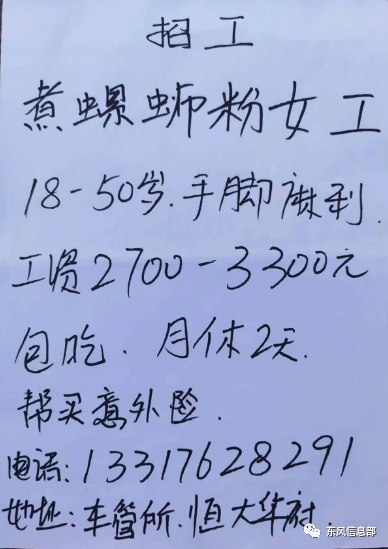 招工
煮螺蛳粉女工
18-50岁.手脚麻利
工资2700-3300元
包吃.月休2天.
帮买意外险.
电话:13317628291
地址:车管所.恒大华府.
东风信息部